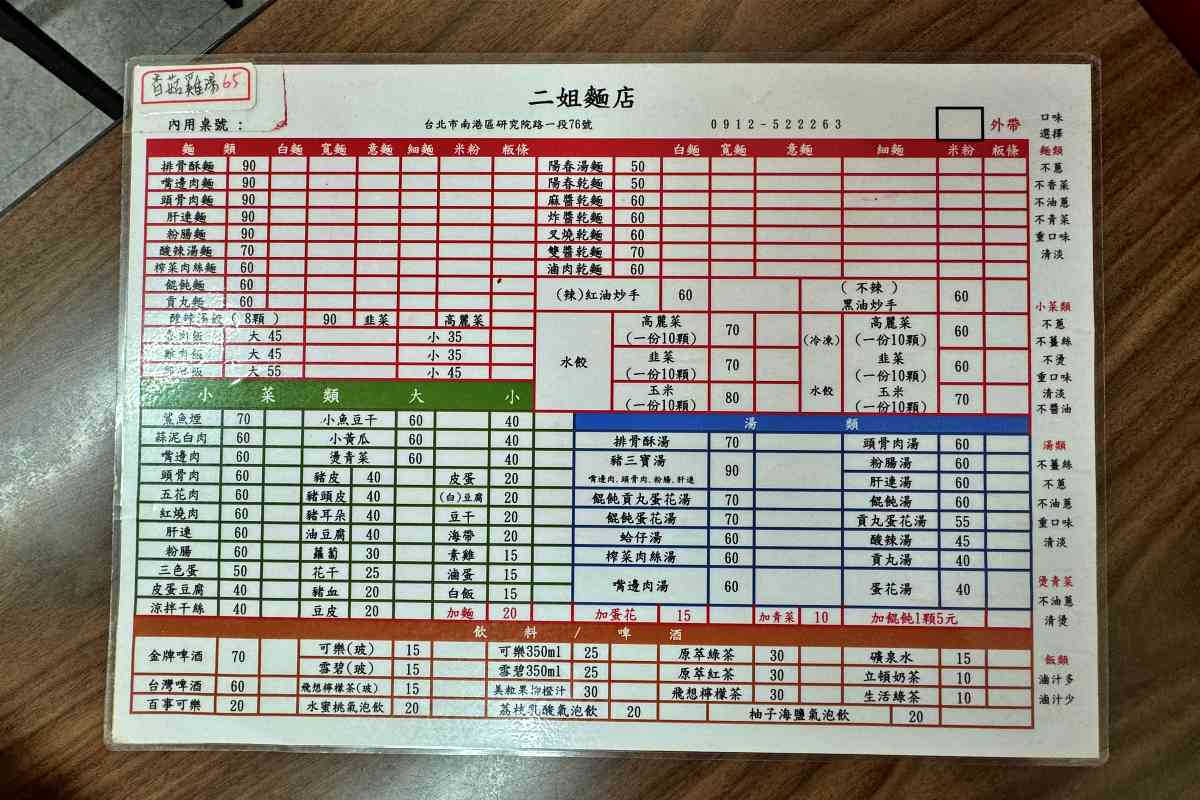 香菇雞湯65
二姐麵店
內用桌號：
台北市南港區研究院路一段76號
0912-522263
外帶
麵 類 白麵 寬麵 意麵 細麵 米粉 板條
排骨酥麵 90
嘴邊肉麵 90
頭骨肉麵 90
肝連麵 90
粉腸麵 90
酸辣湯麵 70
榨菜肉絲麵 60
餛飩麵 60
貢丸麵 60
酸辣湯餃(8顆) 90 韭菜 高麗菜
大 45 小 35
大 45 小 35
大 55 小 45
白麵 寬麵 意麵 細麵 米粉 板條
陽春湯麵 50
陽春乾麵 50
麻醬乾麵 60
炸醬乾麵 60
叉燒乾麵 60
雙醬乾麵 70
滷肉乾麵 60
(辣)紅油炒手 60
(不辣)
黑油炒手 60
水餃
高麗菜
(一份10顆) 70
韭菜
(一份10顆) 70
玉米
(一份10顆) 80
(冷凍)
水餃
高麗菜
(一份10顆) 60
韭菜
(一份10顆) 60
玉米
(一份10顆) 70
小 菜 類 大 小
鯊魚煙 70 小魚豆干 60 40
蒜泥白肉 60 小黃瓜 60 40
嘴邊肉 60 燙青菜 60 40
頭骨肉 60 豬皮 40 皮蛋 20
五花肉 60 豬頭皮 40 (白)豆腐 20
紅燒肉 60 豬耳朵 40 豆干 20
肝連 60 油豆腐 40 海帶 20
粉腸 60 蘿蔔 30 素雞 15
三色蛋 50 花干 25 滷蛋 15
皮蛋豆腐 40 豬血 20 白飯 15
涼拌干絲 40 豆皮 20 加麵 20
湯 類
排骨酥湯 70 頭骨肉湯 60
豬三寶湯
嘴邊肉.頭骨肉.粉腸.肝連 90
粉腸湯 60
肝連湯 60
餛飩貢丸蛋花湯 70 餛飩湯 60
餛飩蛋花湯 70 貢丸蛋花湯 55
蛤仔湯 60 酸辣湯 45
榨菜肉絲湯 60 貢丸湯 40
嘴邊肉湯 60 蛋花湯 40
加蛋花 15 加青菜 10 加餛飩1顆5元
飲 料 / 啤 酒
金牌啤酒 70
可樂(玻) 15 可樂350ml 25 原萃綠茶 30 礦泉水 15
雪碧(玻) 15 雪碧350ml 25 原萃紅茶 30 立頓奶茶 10
台灣啤酒 60 飛想檸檬茶(玻) 15 美粒果柳橙汁 30 飛想檸檬茶 30 生活綠茶 10
百事可樂 20 水蜜桃氣泡飲 20 荔枝乳酸氣泡飲 20 柚子海鹽氣泡飲 20
口味
選擇
麵類
不蔥
不香菜
不油蔥
不青菜
重口味
清淡
小菜類
不蔥
不薑絲
不燙
重口味
清淡
不醬油
湯類
不薑絲
不蔥
不油蔥
重口味
清淡
燙青菜
不油蔥
清燙
飯類
滷汁多
滷汁少